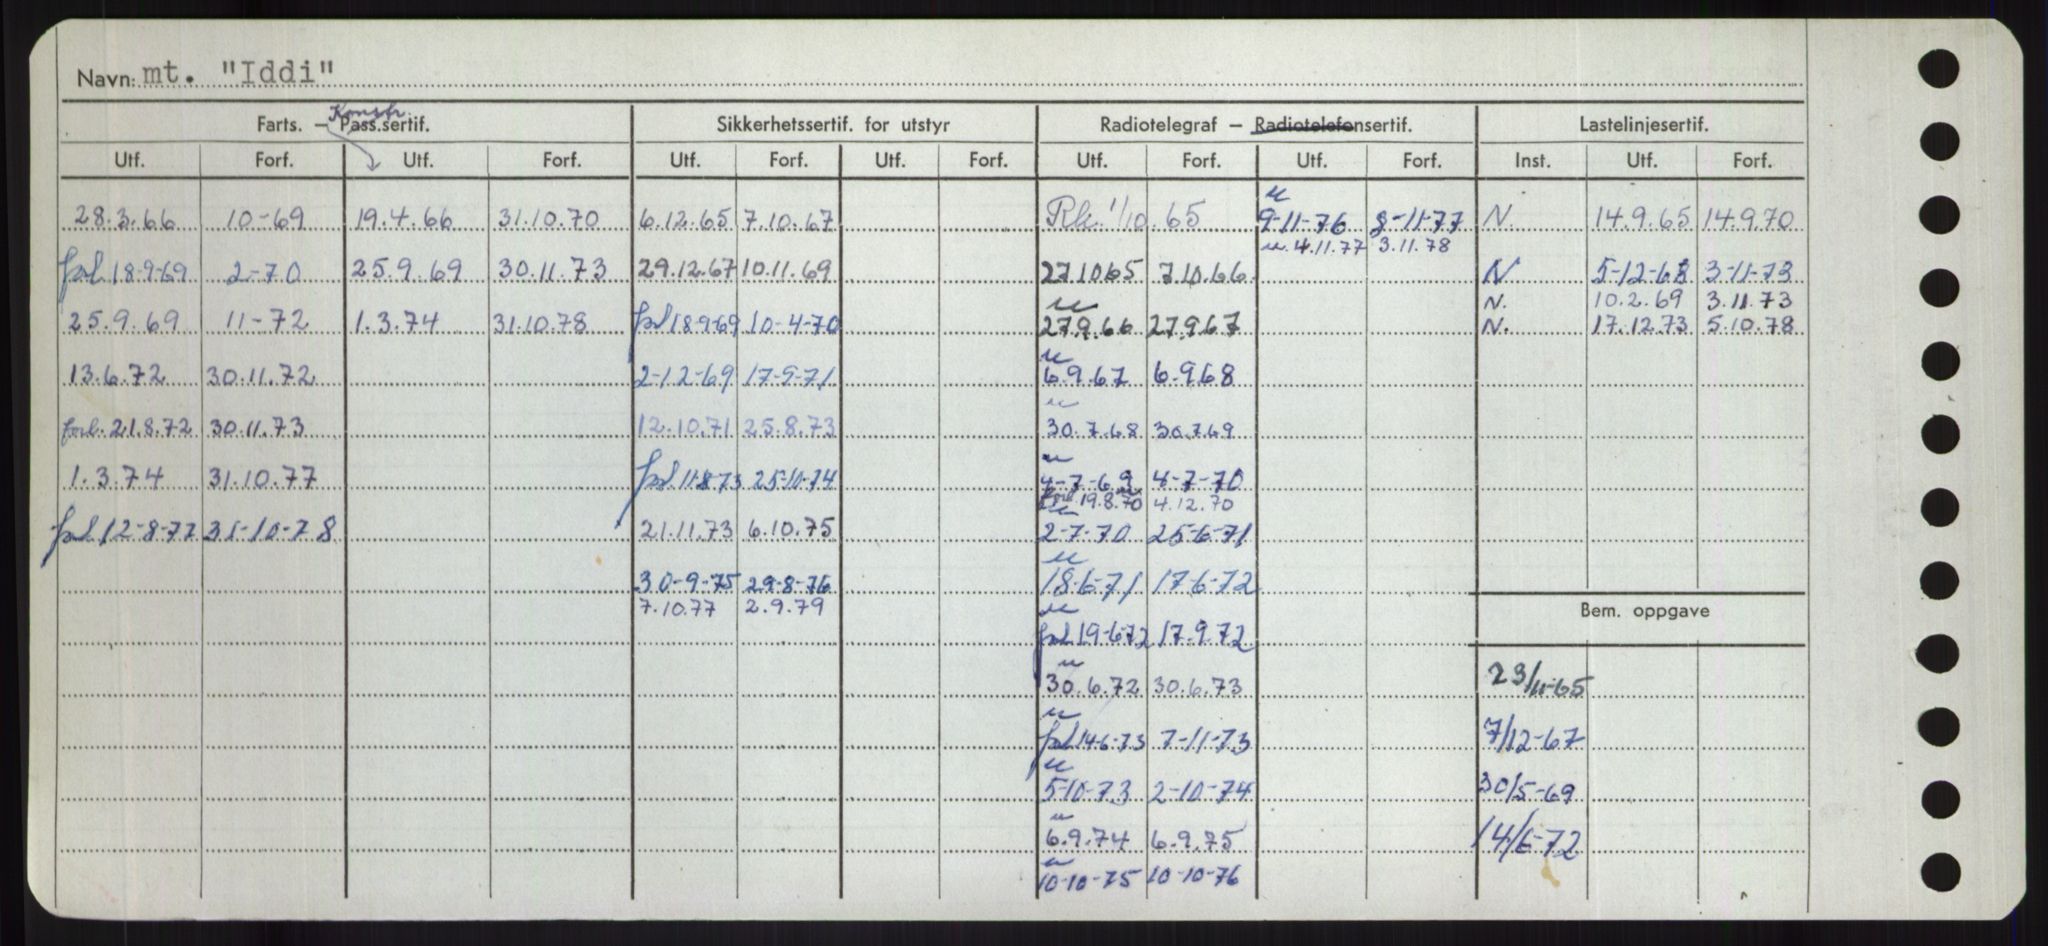 Navn: mt. "Iddi"
Konstr.
Farts. — Pass.sertif. Sikkerhetssertif. for utstyr Radiotelegraf — Radiotelefonsertif. Lastelinjesertif.
Utf. Forf. Utf. Forf. Utf. Forf. Utf. Forf. Utf. Forf. Utf. Forf. Inst. Utf. Forf.
u
28.3.66 10-69 19.4.66 31.10.70 6.12.65 7.10.67 Rk. 1/10.65 9-11-76 8-11-77 N. 14.9.65 14.9.70
u. 4.11.77 3.11.78
forl 18-9-69 2-70 25.9.69 30.11.73 29.12.67 10.11.69 27.10.65 7.10.66. N 5-12-68 3-11-73
u N. 10.2.69 3.11.73
25.9.69 11-72 1.3.74 31.10.78 forl 18-9-69 10-4-70 27.9.66 27.9.67 N. 17.12.73 5.10.78
u
13.6.72 30.11.72 2-12-69 17-9-71 6.9.67 6.9.68
u
forl. 21.8.72 30.11.73 12.10.71 25.8.73 30.7.68 30.7.69
u
1.3.74 31.10.77 forl 11-8-73 25-10-74 4-7-69 4-7-70
forl 19.8.70 4.12.70
u
forl 12-8-77 31-10-78 21.11.73 6.10.75 2-7-70 25-6-71
u
30-9-75 29-8-76 18-6-71 17-6-72
7.10.77 2.9.79 u Bem. oppgave
forl 19-6-72 17-9-72
u
30.6.72 30.6.73 23/11-65
u
forl 14-6-73 7-11-73 7/12-67
u
5-10-73 2-10-74 30/5-69
u
6.9.74 6.9.75 14/6-72
u
10-10-75 10-10-76